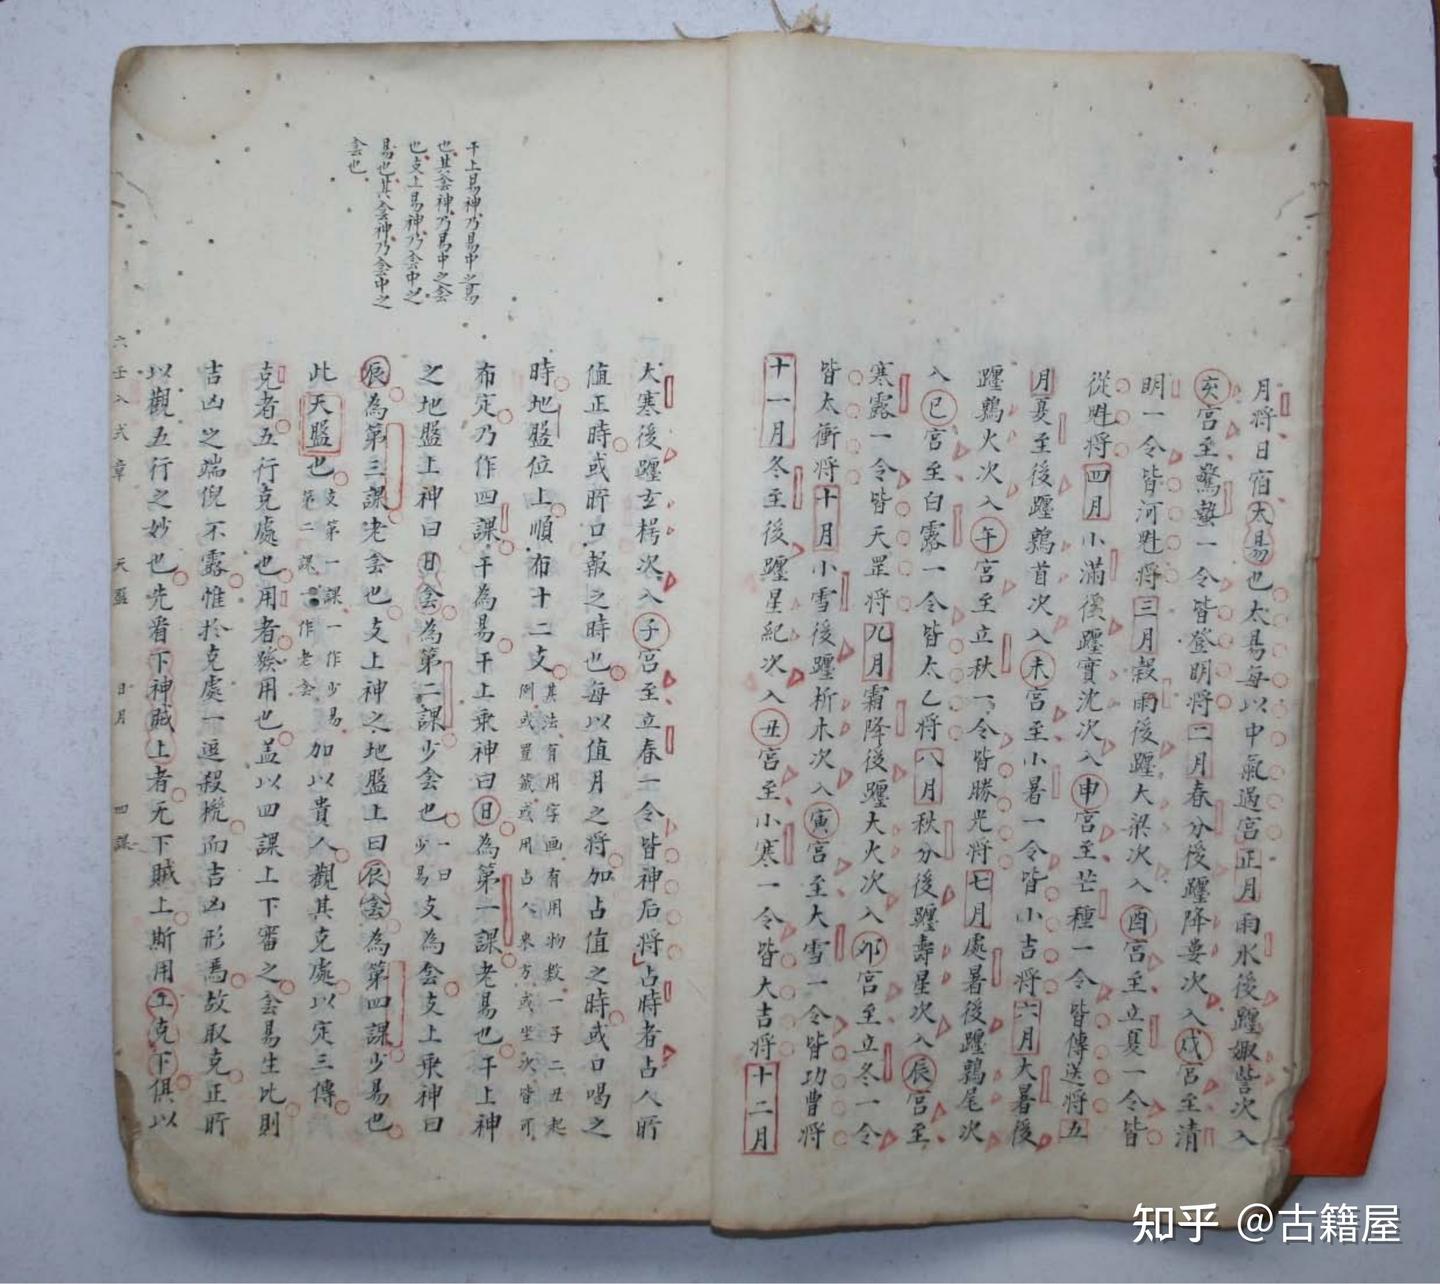 月将日宿太昜也太昜每以中氣過宮正月雨水後躔娵訾次入
亥宮至驚蟄一令皆登明将二月春分後躔降婁次入戌宮至清
明一令皆河魁将三月穀雨後躔大梁次入酉宮至立夏一令皆
從魁将四月小滿後躔實沈次入申宮至芒種一令皆傳送将五
月夏至後躔鶉首次入未宮至小暑一令皆小吉将六月大暑後
躔鶉火次入午宮至立秋一令皆勝光将七月處暑後躔鶉尾次
入巳宮至白露一令皆太乙将八月秋分後躔壽星次入辰宮至
寒露一令皆天罡将九月霜降後躔大火次入夘宮至立冬一令
皆太衝将十月小雪後躔析木次入寅宮至大雪一令皆功曹将
十一月冬至後躔星紀次入丑宮至小寒一令皆大吉将十二月
大寒後躔玄枵次入子宮至立春一令皆神后将占時者占人所
值正時或所口報之時也每以值月之将加占值之時或口喝之
時地盤位上順布十二支其法有用字画有用物数一子二丑起
例或罡籤或用占人来方或坐次皆可
布定乃作四課干為昜干上乘神曰日為第一課老昜也干上神
之地盤上神曰日侌為第二課少侌也一曰少昜支為侌支上乘神曰
辰為第三課老侌也支上神之地盤上曰辰侌為第四課少昜也
此天盤也支第一課一作少昜
第二課一作老侌
加以貴人觀其克處以定三傳
克者五行克處也用者發用也盖以四課上下審之侌昜生比則
吉凶之端倪不露惟於克處一逗殺機而吉凶形焉故取克正所
以觀五行之妙也先看下神賊上者无下賊上斯用上克下俱以
干上昜神乃昜中之昜
也其侌神乃昜中之侌
也支上昜神乃侌中之
昜也其侌神乃侌中之
侌也
六壬入式章 天盤 日月 四課
知乎 @古籍屋